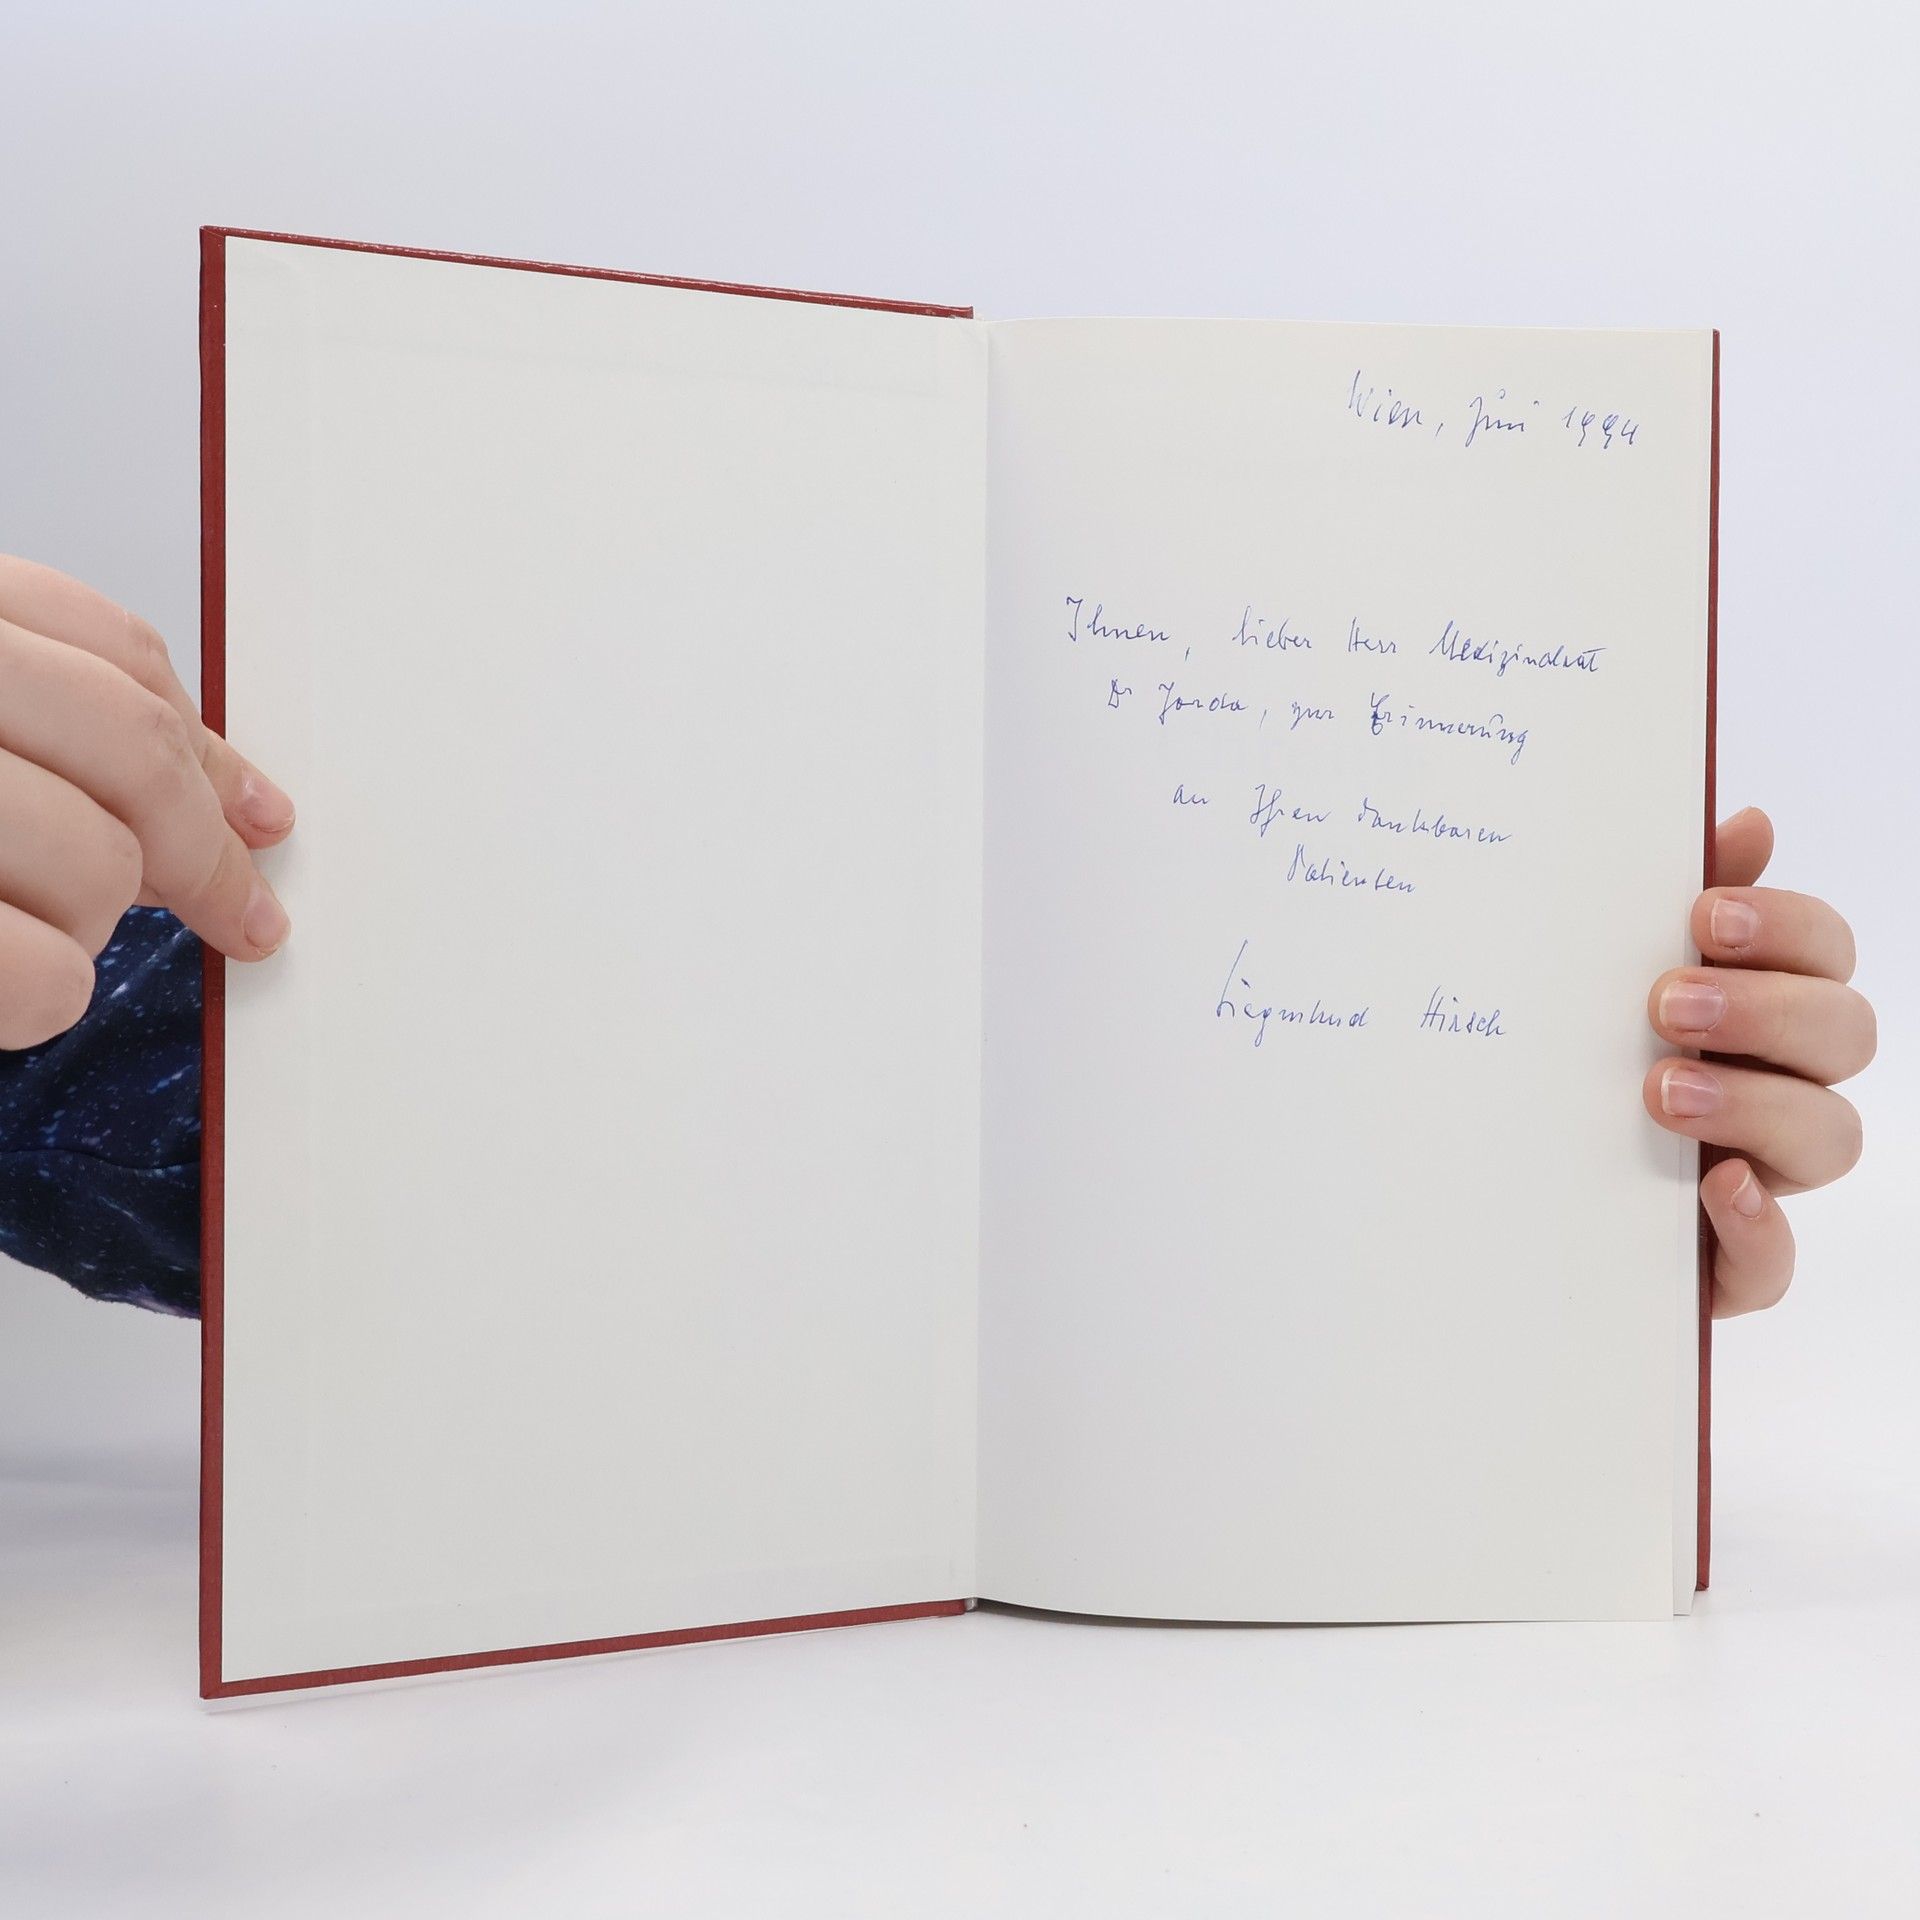 Wien, Juni 1994
Ihnen, lieber Herr Medizinalrat
Dr Jorda, zur Erinnerung
an Ihren dankbaren
Patienten
Siegmund Hirsch